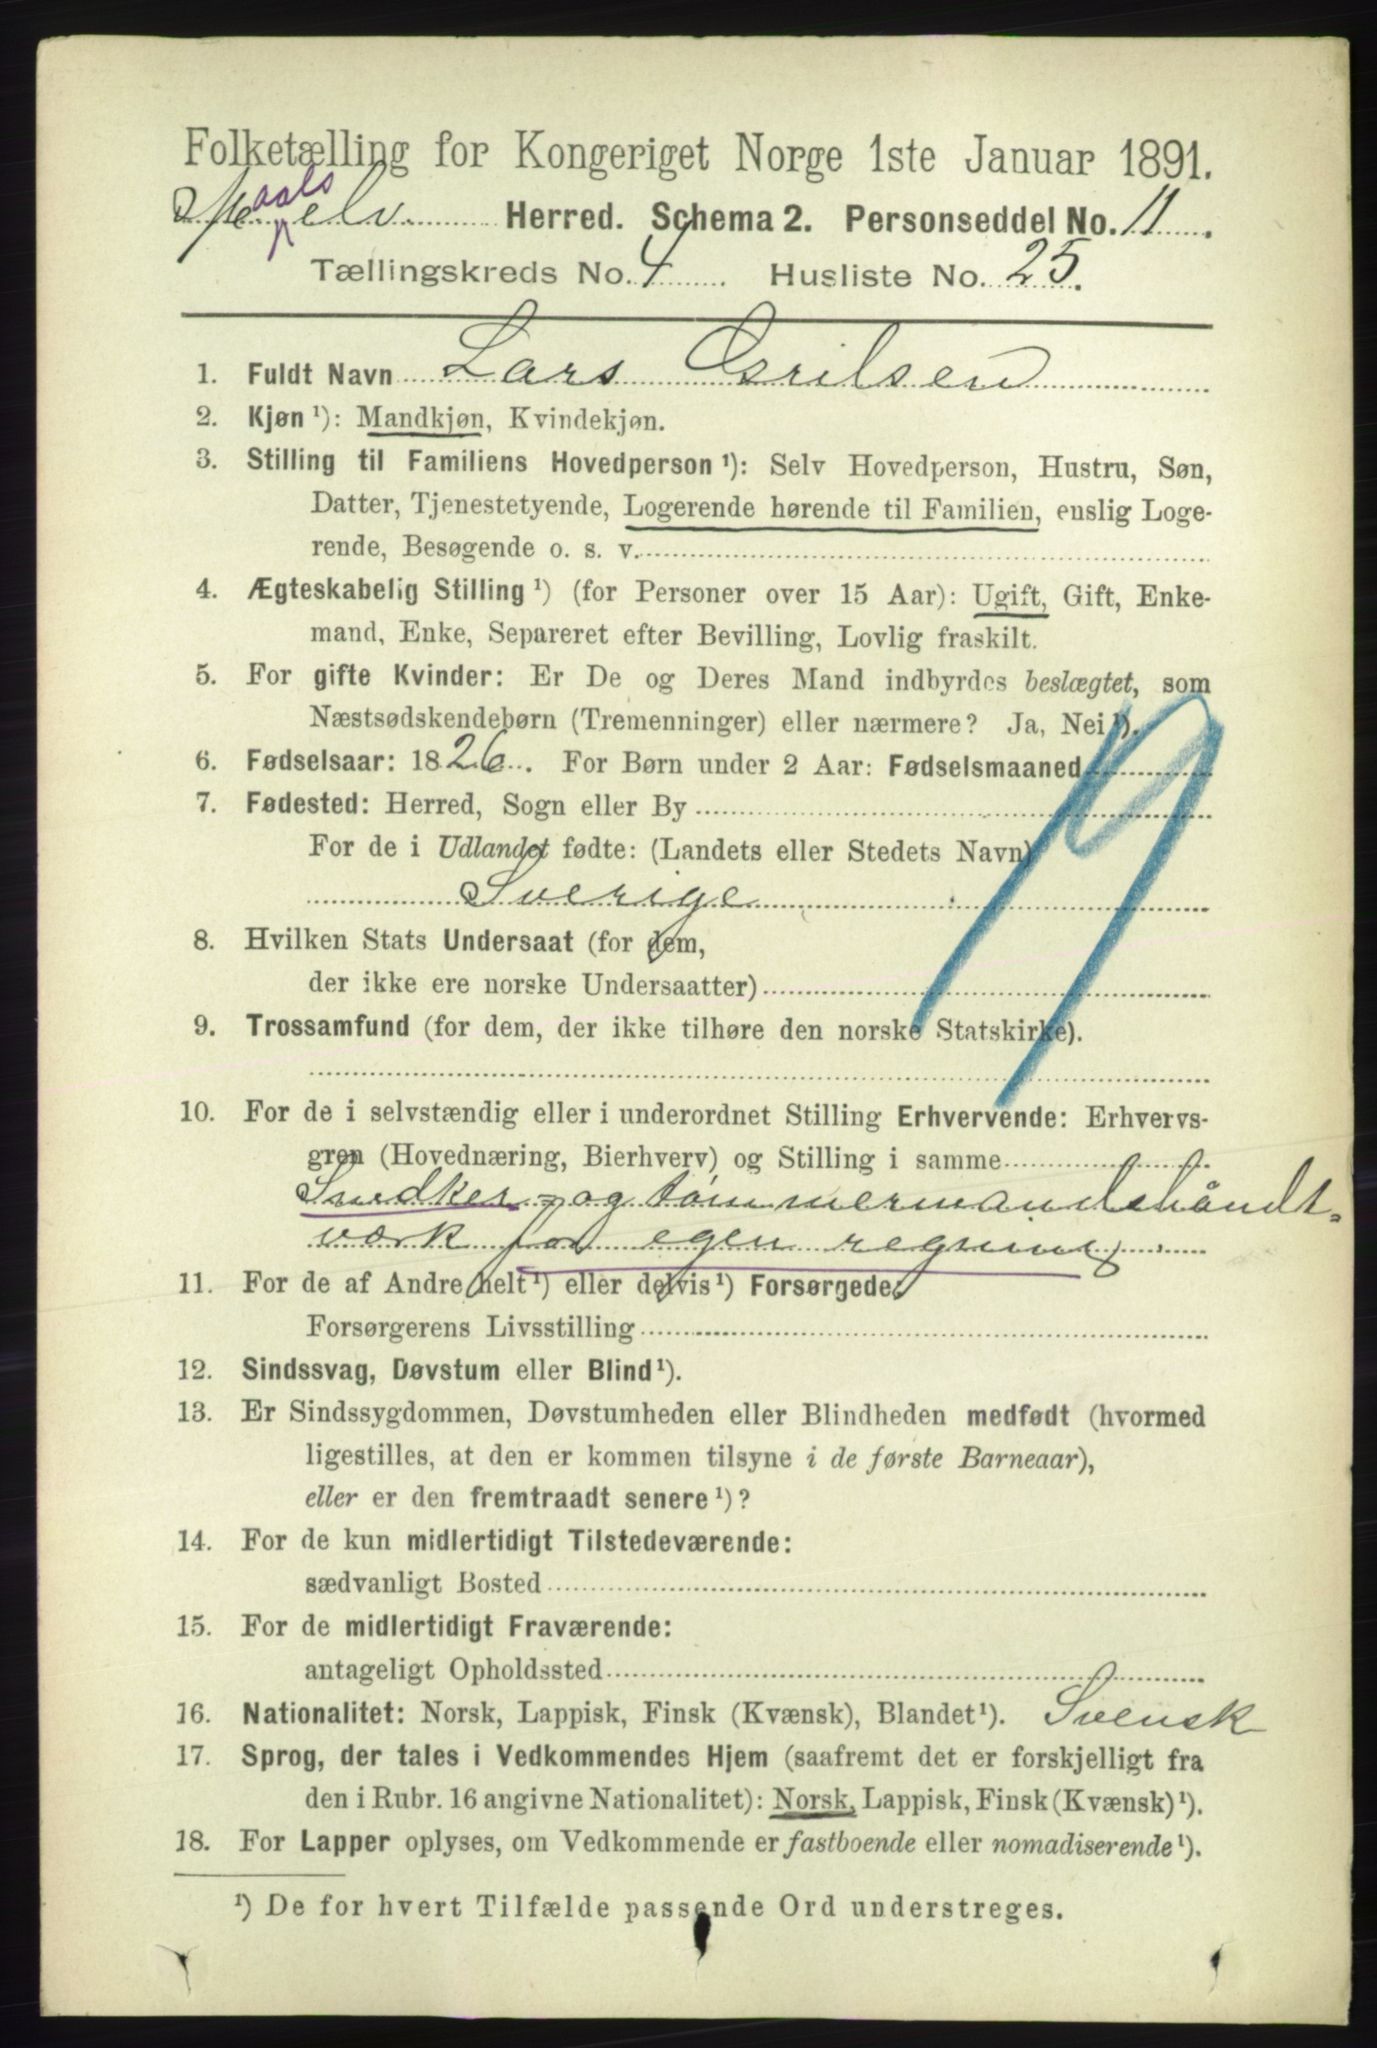 Folketælling for Kongeriget Norge 1ste Januar 1891.
Maalselv Herred. Schema 2. Personseddel No. 11.
Tællingskreds No. 4 Husliste No. 25.
1. Fuldt Navn Lars Esrilsen
2. Kjøn ¹): Mandkjøn, Kvindekjøn.
3. Stilling til Familiens Hovedperson ¹): Selv Hovedperson, Hustru, Søn,
Datter, Tjenestetyende, Logerende hørende til Familien, enslig Loge-
rende, Besøgende o. s. v.
4. Ægteskabelig Stilling ¹) (for Personer over 15 Aar): Ugift, Gift, Enke-
mand, Enke, Separeret efter Bevilling, Lovlig fraskilt.
5. For gifte Kvinder: Er De og Deres Mand indbyrdes beslægtet, som
Næstsødskendebørn (Tremenninger) eller nærmere? Ja, Nei ¹).
6. Fødselsaar: 1826. For Børn under 2 Aar: Fødselsmaaned
7. Fødested: Herred, Sogn eller By
For de i Udlandet fødte: (Landets eller Stedets Navn)
Sverige
8. Hvilken Stats Undersaat (for dem,
der ikke ere norske Undersaatter)
9. Trossamfund (for dem, der ikke tilhøre den norske Statskirke).
10. For de i selvstændig eller i underordnet Stilling Erhvervende: Erhvervs-
gren (Hovednæring, Bierhverv) og Stilling i samme
Snedker- og tømmermandshåndt-
værk for egen regning
11. For de af Andre helt ¹) eller delvis ¹) Forsørgede:
Forsørgerens Livsstilling
12. Sindssvag, Døvstum eller Blind ¹).
13. Er Sindssygdommen, Døvstumheden eller Blindheden medfødt (hvormed
ligestilles, at den er kommen tilsyne i de første Barneaar),
eller er den fremtraadt senere ¹)?
14. For de kun midlertidigt Tilstedeværende:
sædvanligt Bosted
15. For de midlertidigt Fraværende:
antageligt Opholdssted
16. Nationalitet: Norsk, Lappisk, Finsk (Kvænsk), Blandet ¹). Svensk
17. Sprog, der tales i Vedkommendes Hjem (saafremt det er forskjelligt fra
den i Rubr. 16 angivne Nationalitet): Norsk, Lappisk, Finsk (Kvænsk) ¹).
18. For Lapper oplyses, om Vedkommende er fastboende eller nomadiserende ¹).
¹) De for hvert Tilfælde passende Ord understreges.